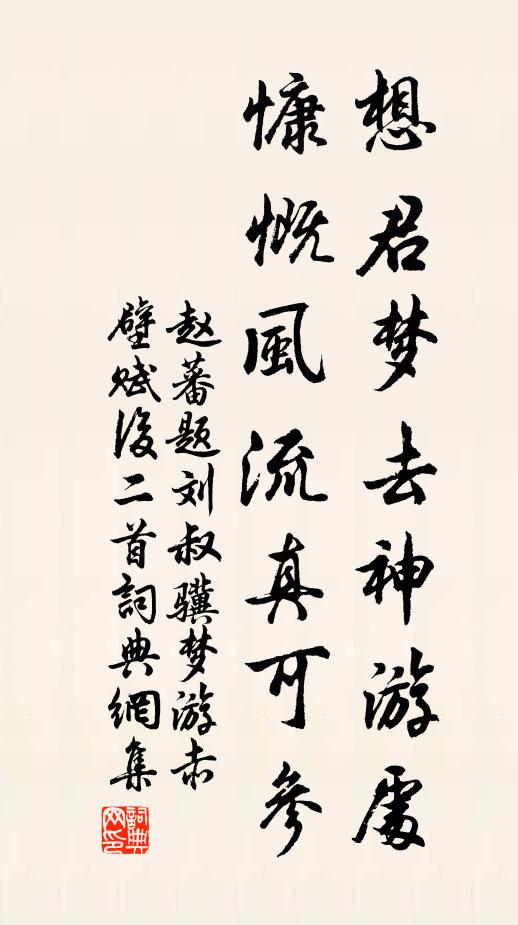 想君梦去神游處
慷慨風流真可參
赵蕃题刘叔骥梦游赤
壁赋後二首詞典網集
詞典網印